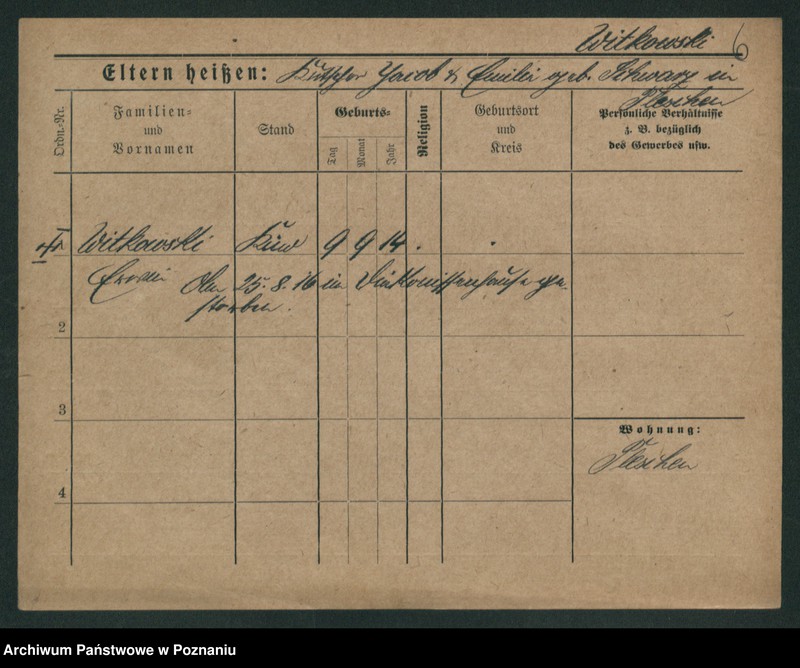 Witkowski
6
Eltern heißen: Kutscher Jacob & Emilie geb. Schwarz in
Pleschen
Ordn.-Nr.
Familien-
und
Vornamen
Stand
Geburts-
Tag
Monat
Jahr
Religion
Geburtsort
und
Kreis
Persönliche Verhältnisse
z. B. bezüglich
des Gewerbes usw.
Witkowski Kind 9 9 14 . .
Erwin Am 25.8.16 im Diakonissenhause ge-
storben.
2
3
Wohnung:
Pleschen
4
Archiwum Państwowe w Poznaniu